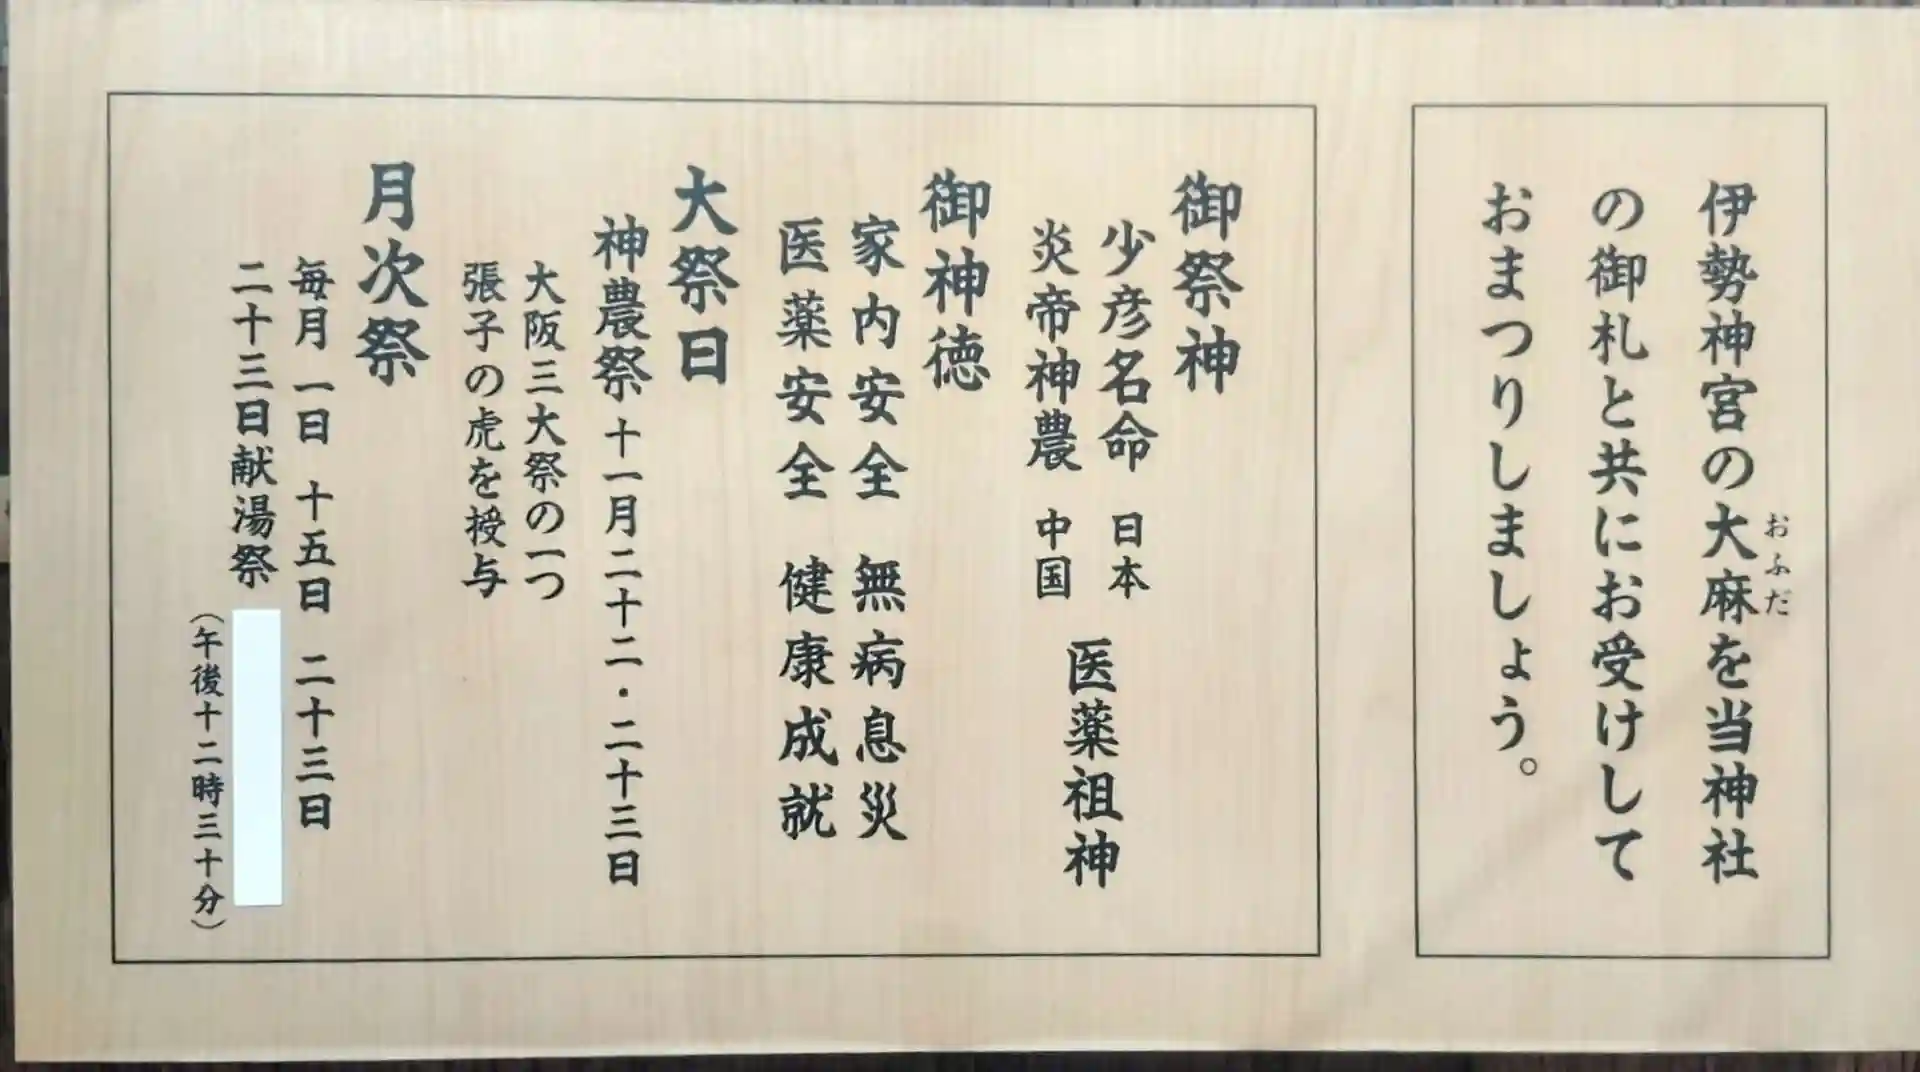 伊勢神宮の大麻を当神社
おふだ
の御札と共にお受けして
おまつりしましょう。
御祭神
少彦名命 日本
炎帝神農 中国
医薬祖神
御神徳
家内安全 無病息災
医薬安全 健康成就
大祭日
神農祭 十一月二十二・二十三日
大阪三大祭の一つ
張子の虎を授与
月次祭
毎月 一日 十五日 二十三日
二十三日献湯祭
（午後十二時三十分）